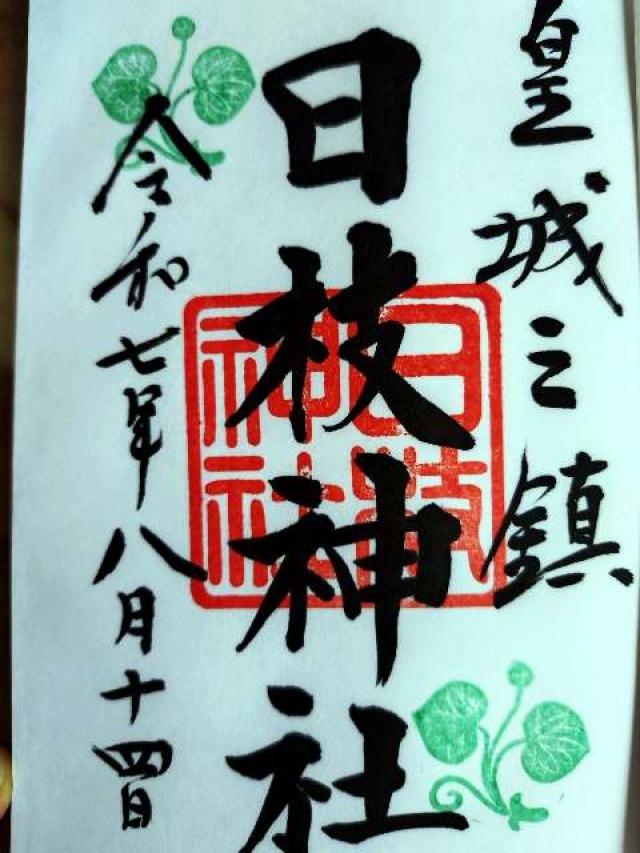 皇城之鎮
日枝神社
日枝神社
令和七年八月十四日